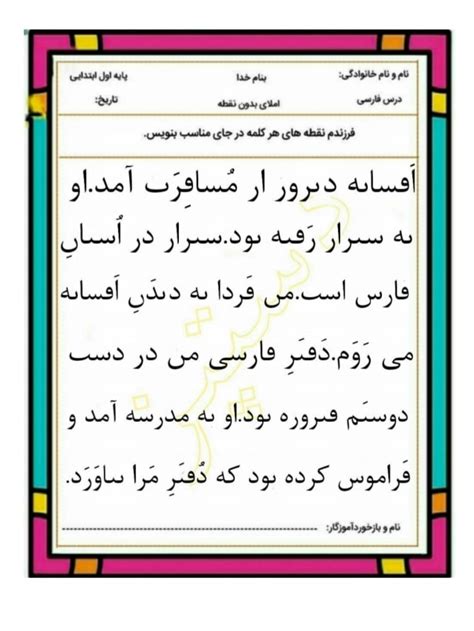 نام و نام خانوادگی: بنام خدا پایه اول ابتدایی
درس فارسی املای بدون نقطه تاریخ:
فرزندم نقطه های هر کلمه در جای مناسب بنویس.
اَفساٮه دٮرور ار مُسافِرَت آمد.او
ٮه سٮرار رَفٮه ٮود.سٮرار در اُسٮاںِ
فارس است.مں فَردا ٮه دٮدَںِ اَفساٮه
می رَوَم.دَفٮَرِ فارسی من در دست
دوسٮَم فٮروره ٮود.او ٮه مدرسه آمد و
فَراموس کرده ٮود که دَفٮَرِ مَرا ٮٮاوَرَد.
نام و بازخوردآموزگار: